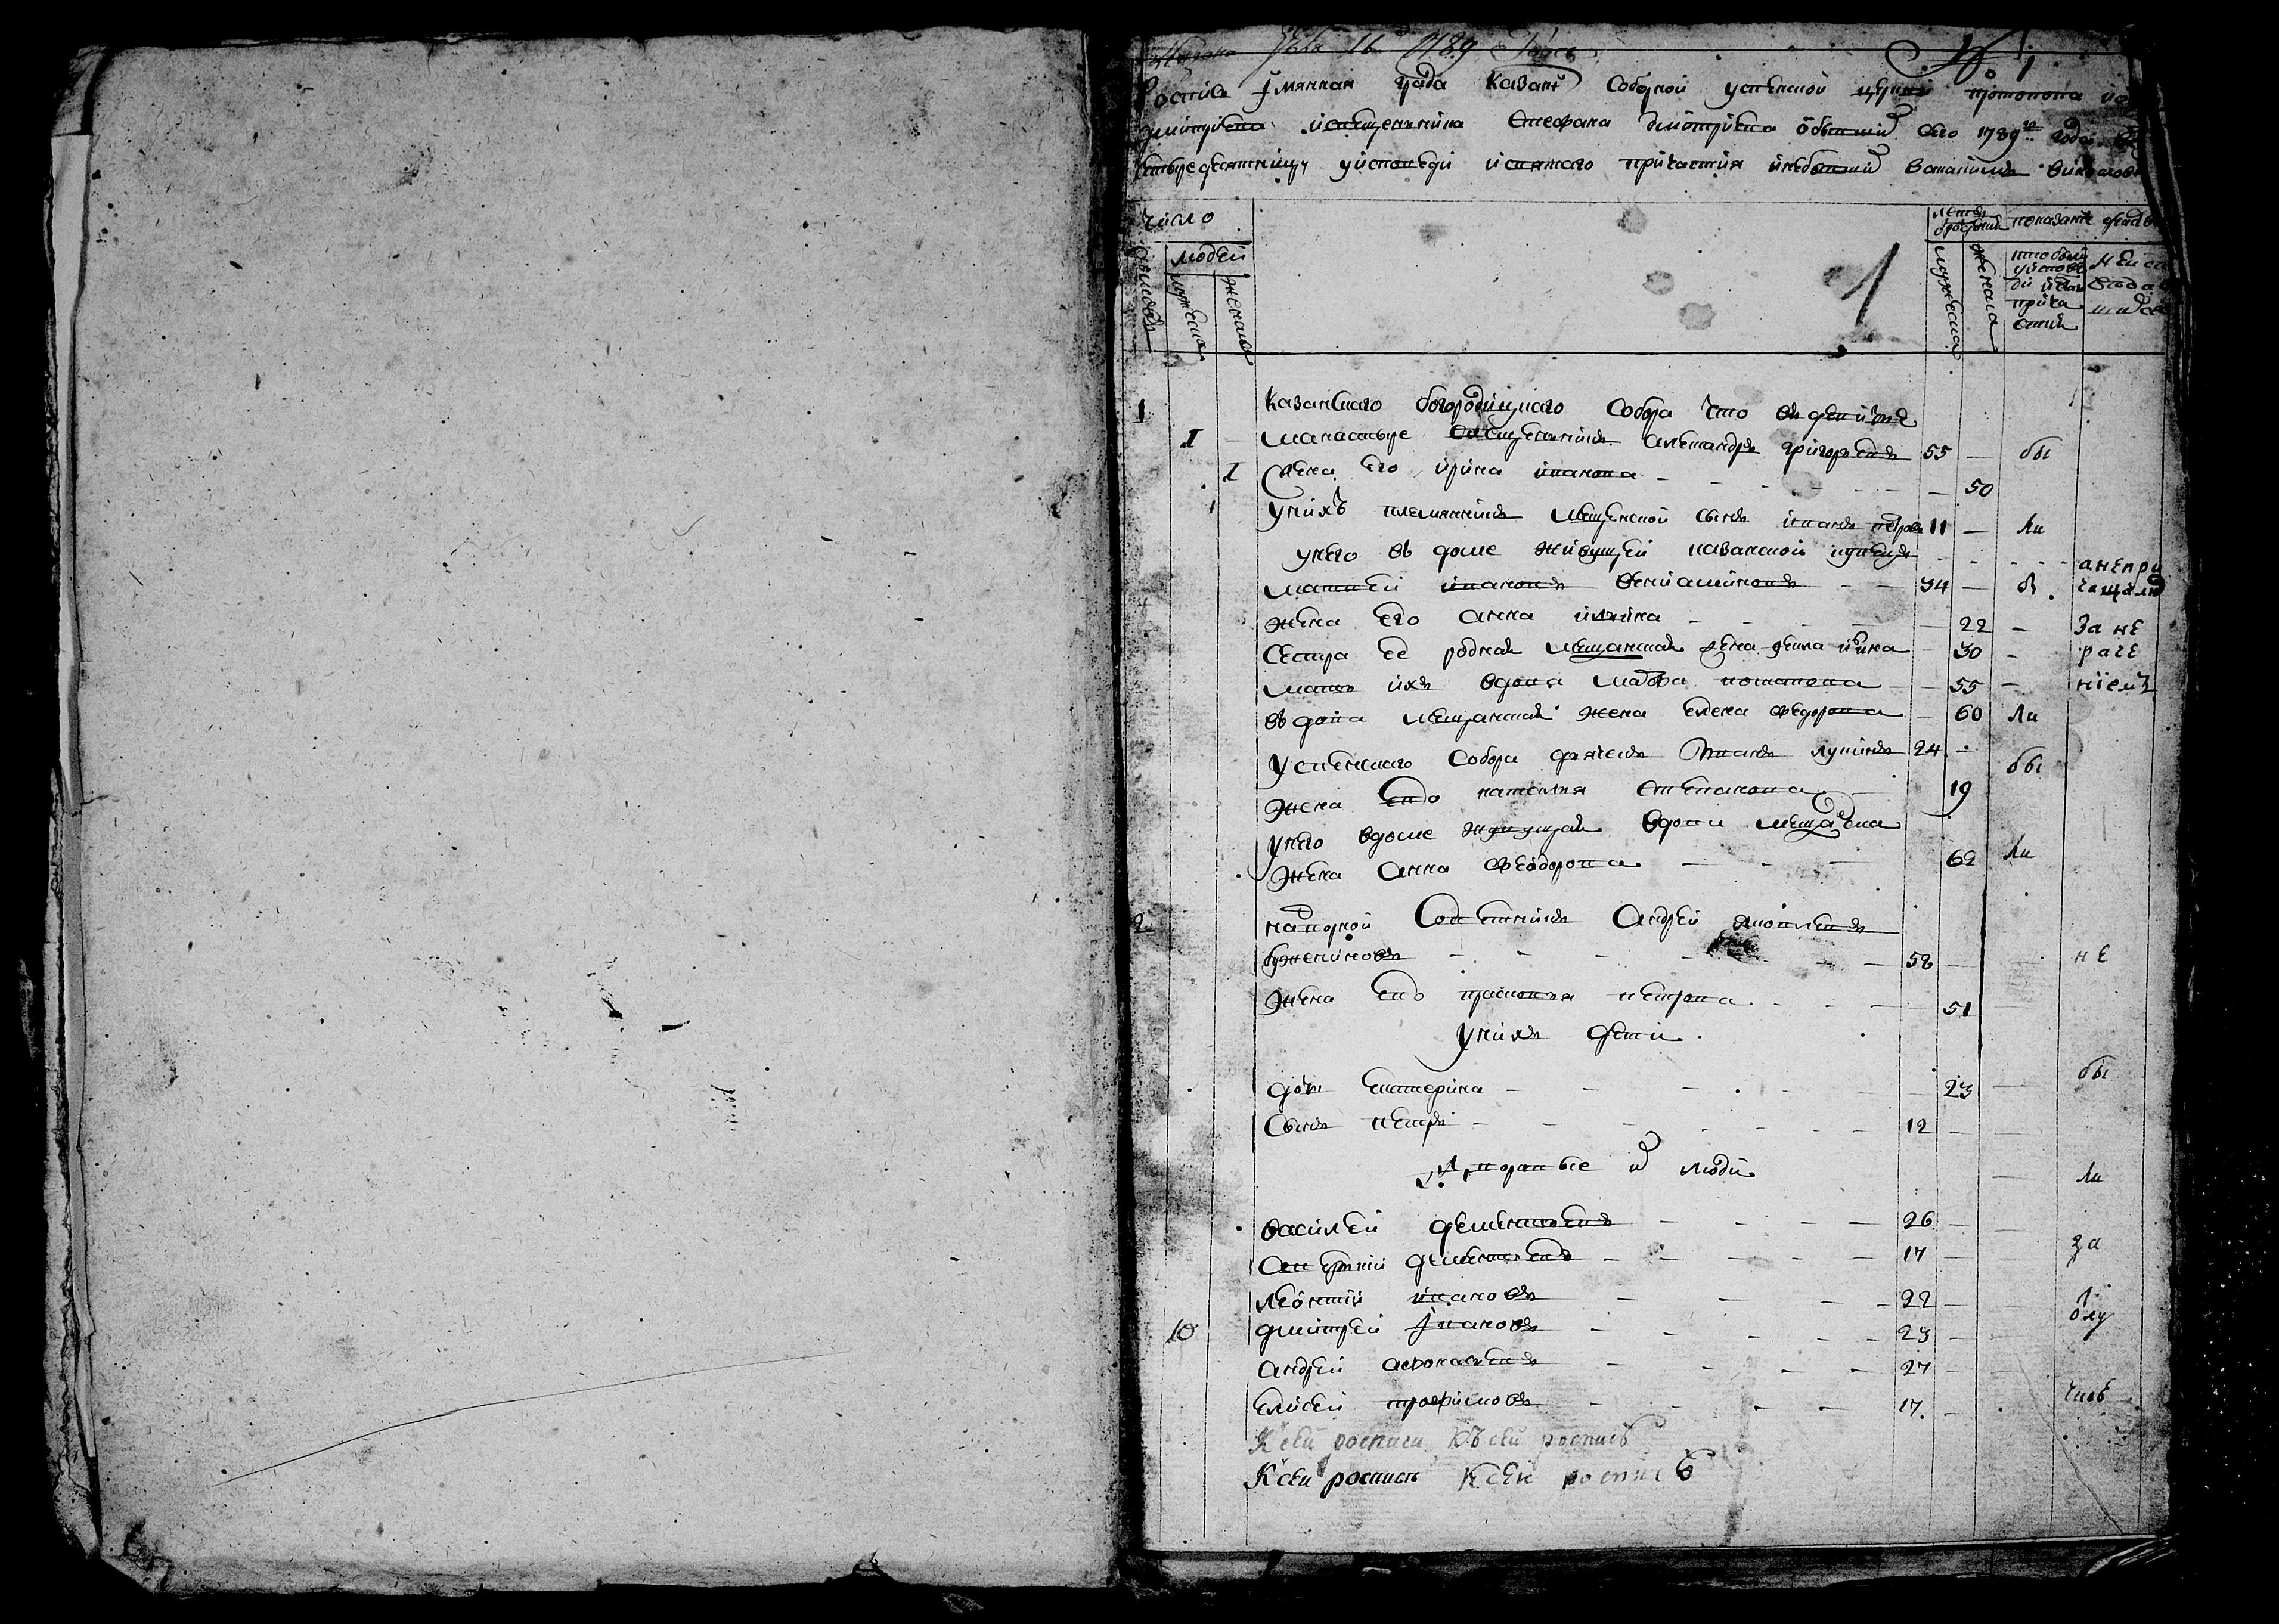 16 1789 Года
№ 1
Роспись Імянная града Казани Соборной успенской церкви протопопа
дмитриева исвещенника Стефана дмитриева обывших сего 1789го года
четыредесятницу уисповеди исвятаго причастия инебывших
число
людей
домовъ
мужеска
женска
лета отрождения
мужеска
женска
показание
ктобылъ уисповеди исвят причастия
1
1 Казанскаго богородицкаго Собора что въ девичьѣ
1 манастыре священникъ александръ григорьевъ 55 — бы
1 Жена его ирина иванова — 50
унихъ племянникъ мещенской сынъ иванъ петровъ 11 — ли
унего въ доме живущей казанской купецъ
матвей ивановъ вениаминовъ 34 — в анепри сащалися
жена его анна ильина — 22 — За не
Сестра ее родная мещанская жена фекла ильина — 30 — раче
мать ихъ вдова — 55 — ніемъ
вдова мещанская жена елена федорова — 60 ли
успенскаго Собора дьячекъ Іванъ лукинъ 24 —
бы
Жена ево наталья степанова 19
унево вдоме живущая вдова мещанска
Жена Анна Феодорова 62 ли
2 надворной Советникъ Андрей яковлевъ
бужениновъ 58 — не
Жена ево прасковья петрова 51
унихъ дети
дочь екатерина 23 бы
Сынъ петръ 12
дворовые их люди
ли
василей дементьевъ 26
дементьевъ 17 за
леонтий ивановъ 22
10 дмитрей Ивановъ 23 отлу
андрей афонасьевъ 27
елисей трофимовъ 17 чкою
К сей росписи къ сей росписѣ
К сей росписи К сей росписѣ